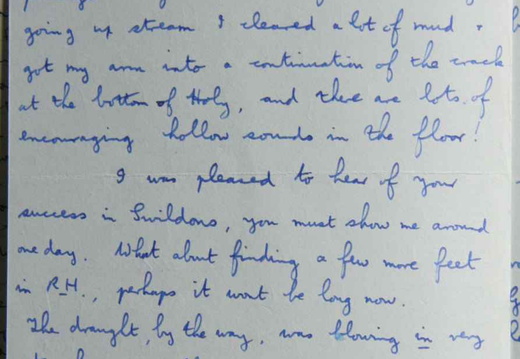 going up stream I cleared a lot of mud +
got my arm into a continuation of the crack
at the bottom of Holy, and there are lots of
encouraging hollow sounds in the floor!
I was pleased to hear of your
success in Swildons, you must show me around
one day. What about finding a few more feet
in R.H., perhaps it wont be long now.
The draught, by the way, was blowing in very